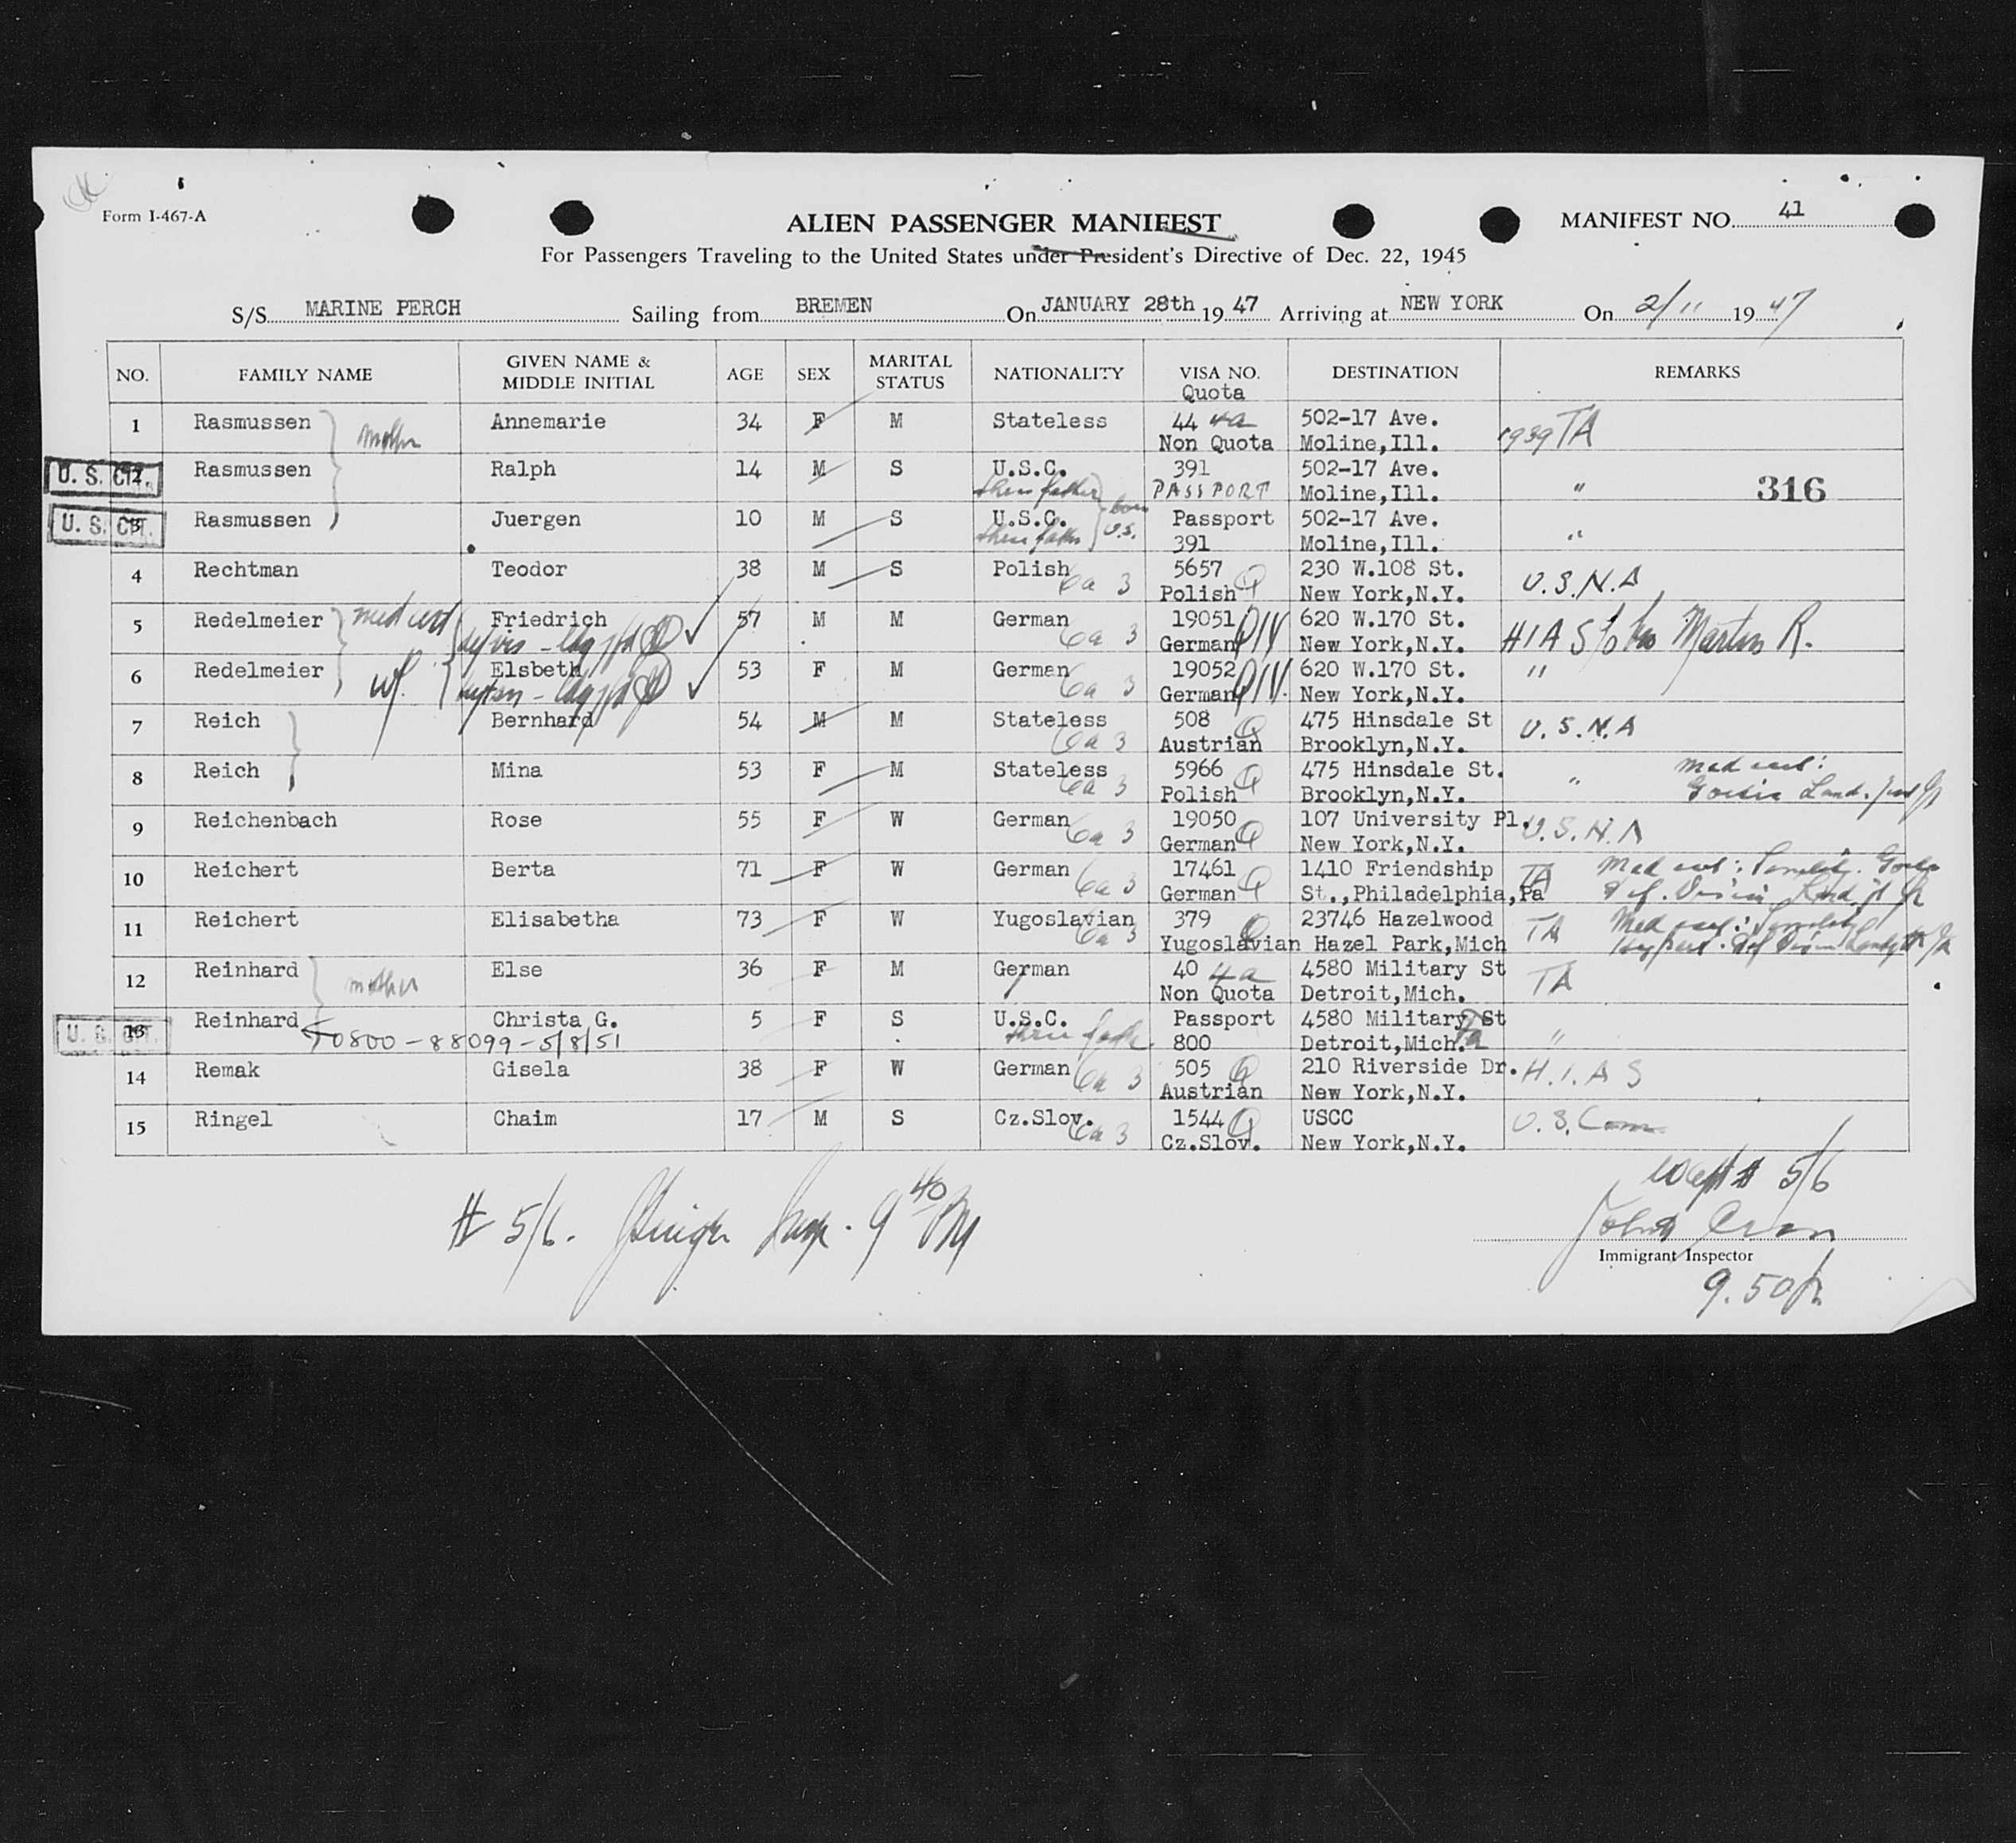 Form I-467-A
ALIEN PASSENGER MANIFEST
MANIFEST NO. 41
For Passengers Traveling to the United States under President's Directive of Dec. 22, 1945
S/S MARINE PERCH Sailing from BREMEN On JANUARY 28th 19 47 Arriving at NEW YORK On 2/11 19 47
NO. FAMILY NAME GIVEN NAME & MIDDLE INITIAL AGE SEX MARITAL STATUS NATIONALITY VISA NO. Quota DESTINATION REMARKS
1 Rasmussen mother Annemarie 34 F M Stateless 44 4a 502-17 Ave. 1939 TA
Non Quota Moline,Ill.
U. S. CIT. 2 Rasmussen Ralph 14 M S U.S.C. 391 502-17 Ave. "
thru father PASSPORT Moline,Ill. 316
U. S. CIT. 3 Rasmussen Juergen 10 M S U.S.C. born U.S. Passport 502-17 Ave. "
thru father 391 Moline,Ill.
4 Rechtman Teodor 38 M S Polish 5657 Q 230 W.108 St. U.S.N.A
6a 3 Polish New York,N.Y.
5 Redelmeier med cert Friedrich 57 M M German 19051 QIV 620 W.170 St. HIAS Martin R.
6a 3 German New York,N.Y.
6 Redelmeier wf. Elsbeth 53 F M German 19052 QIV 620 W.170 St. "
6a 3 German New York,N.Y.
7 Reich Bernhard 54 M M Stateless 508 Q 475 Hinsdale St U.S.N.A
6a 3 Austrian Brooklyn,N.Y.
8 Reich Mina 53 F M Stateless 5966 Q 475 Hinsdale St. " Med cert:
6a 3 Polish Brooklyn,N.Y.
9 Reichenbach Rose 55 F W German 19050 Q 107 University Pl. U.S.N.A
6a 3 German New York,N.Y.
10 Reichert Berta 71 F W German 17461 Q 1410 Friendship TA Med cert: Senility.
6a 3 German St.,Philadelphia,Pa Def. Vision
11 Reichert Elisabetha 73 F W Yugoslavian 379 Q 23746 Hazelwood TA Med cert: Senility
6a 3 Yugoslavian Hazel Park,Mich
12 Reinhard mother Else 36 F M German 40 4a 4580 Military St TA
Non Quota Detroit,Mich.
U. S. CIT. 13 Reinhard Christa G. 5 F S U.S.C. Passport 4580 Military St "
0800-88099-5/8/51 thru father 800 Detroit,Mich.
14 Remak Gisela 38 F W German 505 Q 210 Riverside Dr. H.I.A S
6a 3 Austrian New York,N.Y.
15 Ringel Chaim 17 M S Cz.Slov. 1544 Q USCC U.S. Com
6a 3 Cz.Slov. New York,N.Y.
except # 5/6
# 5/6. 9 40
Immigrant Inspector
9.50